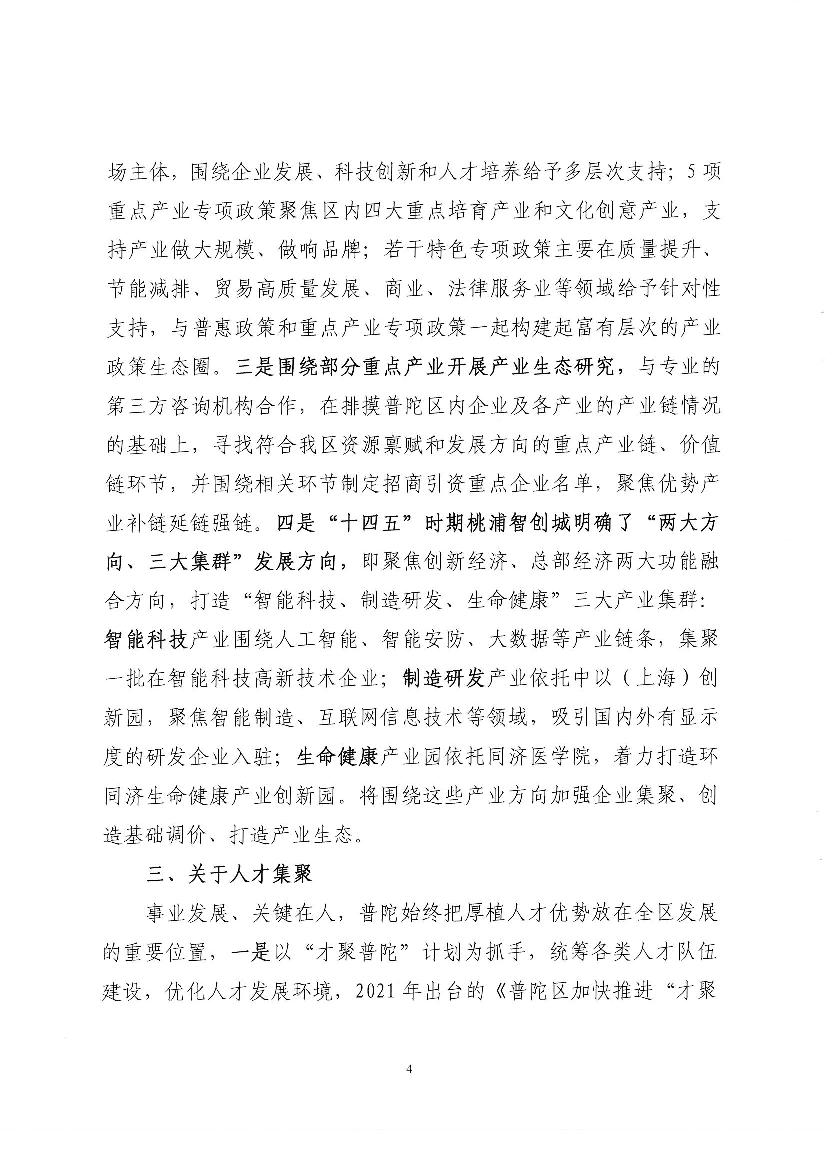 场主体，围绕企业发展、科技创新和人才培养给予多层次支持；5 项
重点产业专项政策聚焦区内四大重点培育产业和文化创意产业，支
持产业做大规模、做响品牌；若干特色专项政策主要在质量提升、
节能减排、贸易高质量发展、商业、法律服务业等领域给予针对性
支持，与普惠政策和重点产业专项政策一起构建起富有层次的产业
政策生态圈。三是围绕部分重点产业开展产业生态研究，与专业的
第三方咨询机构合作，在排摸普陀区内企业及各产业的产业链情况
的基础上，寻找符合我区资源禀赋和发展方向的重点产业链、价值
链环节，并围绕相关环节制定招商引资重点企业名单，聚焦优势产
业补链延链强链。四是“十四五”时期桃浦智创城明确了“两大方
向、三大集群”发展方向，即聚焦创新经济、总部经济两大功能融
合方向，打造“智能科技、制造研发、生命健康”三大产业集群：
智能科技产业围绕人工智能、智能安防、大数据等产业链条，集聚
一批在智能科技高新技术企业；制造研发产业依托中以（上海）创
新园，聚焦智能制造、互联网信息技术等领域，吸引国内外有显示
度的研发企业入驻；生命健康产业园依托同济医学院，着力打造环
同济生命健康产业创新园。将围绕这些产业方向加强企业集聚、创
造基础调价、打造产业生态。
三、关于人才集聚
事业发展、关键在人，普陀始终把厚植人才优势放在全区发展
的重要位置，一是以“才聚普陀”计划为抓手，统筹各类人才队伍
建设，优化人才发展环境，2021 年出台的《普陀区加快推进“才聚
4